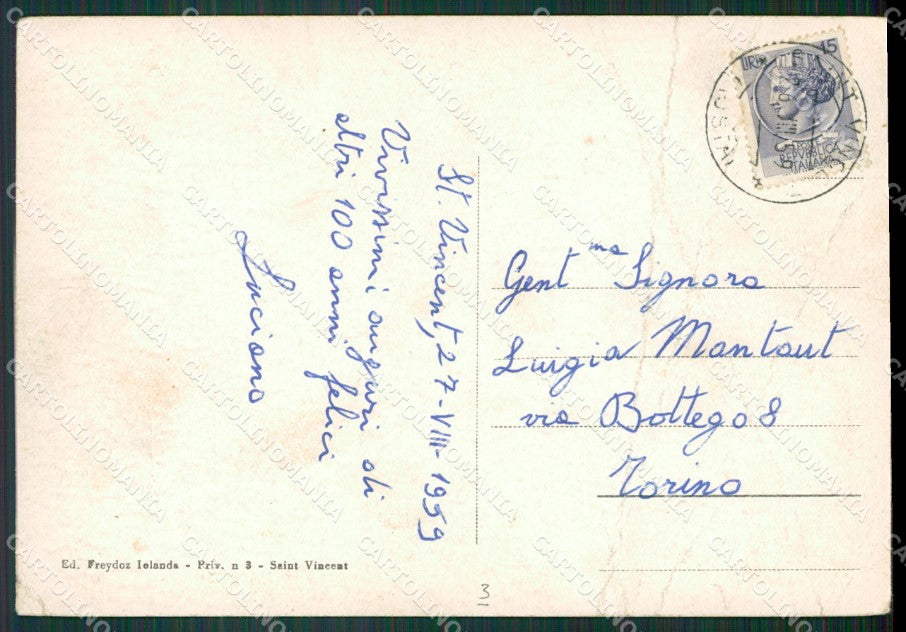 St. Vincent, 27-VIII-1959
Vivissimi auguri di
altri 100 anni felici
Luciano
Ed. Freydoz Iolanda - Priv. n 3 - Saint Vincent
LIRE 15
REPVBBLICA
ITALIANA
Gent.ma Signora
Luigia Mantaut
via Bottego 8
Torino
3
CARTOLINOMANIA